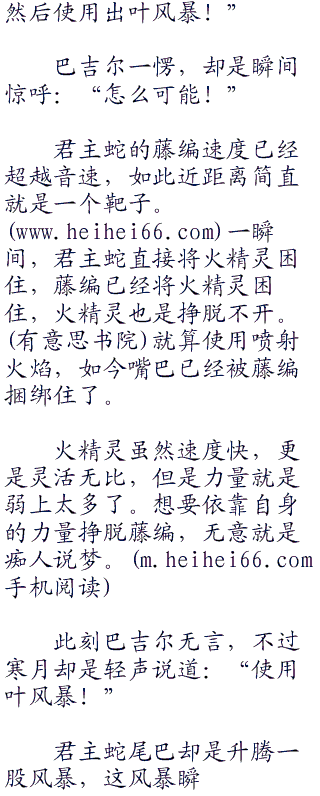 然后使用出叶风暴！”
巴吉尔一愣，却是瞬间
惊呼：“怎么可能！”
君主蛇的藤编速度已经
超越音速，如此近距离简直
就是一个靶子。
(www.heihei66.com)一瞬
间，君主蛇直接将火精灵困
住，藤编已经将火精灵困
住，火精灵也是挣脱不开。
(有意思书院)就算使用喷射
火焰，如今嘴巴已经被藤编
捆绑住了。
火精灵虽然速度快，更
是灵活无比，但是力量就是
弱上太多了。想要依靠自身
的力量挣脱藤编，无意就是
痴人说梦。(m.heihei66.com
手机阅读)
此刻巴吉尔无言，不过
寒月却是轻声说道：“使用
叶风暴！”
君主蛇尾巴却是升腾一
股风暴，这风暴瞬